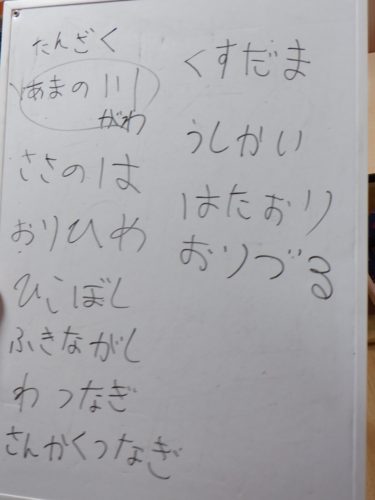 たんざく
あまの川
がわ
ささのは
おりひめ
ひこぼし
ふきながし
わつなぎ
さんかくつなぎ
くすだま
うしかい
はたおり
おりづる